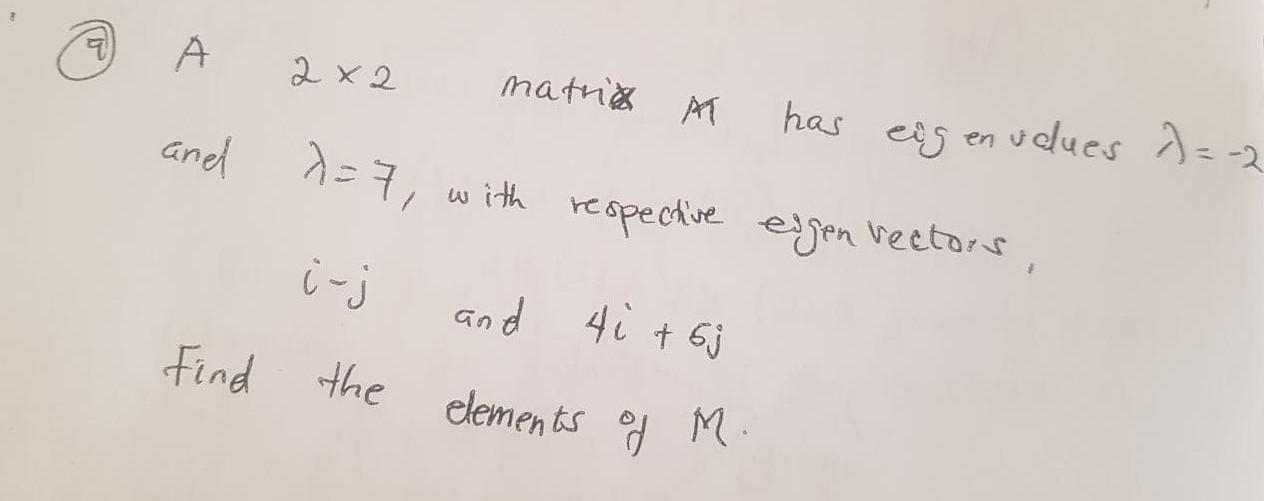 9 A 2 × 2 matrix M has eigenvalues λ = -2
and λ = 7, with respective eigen vectors,
i - j and 4i + 5j
Find the elements of M.